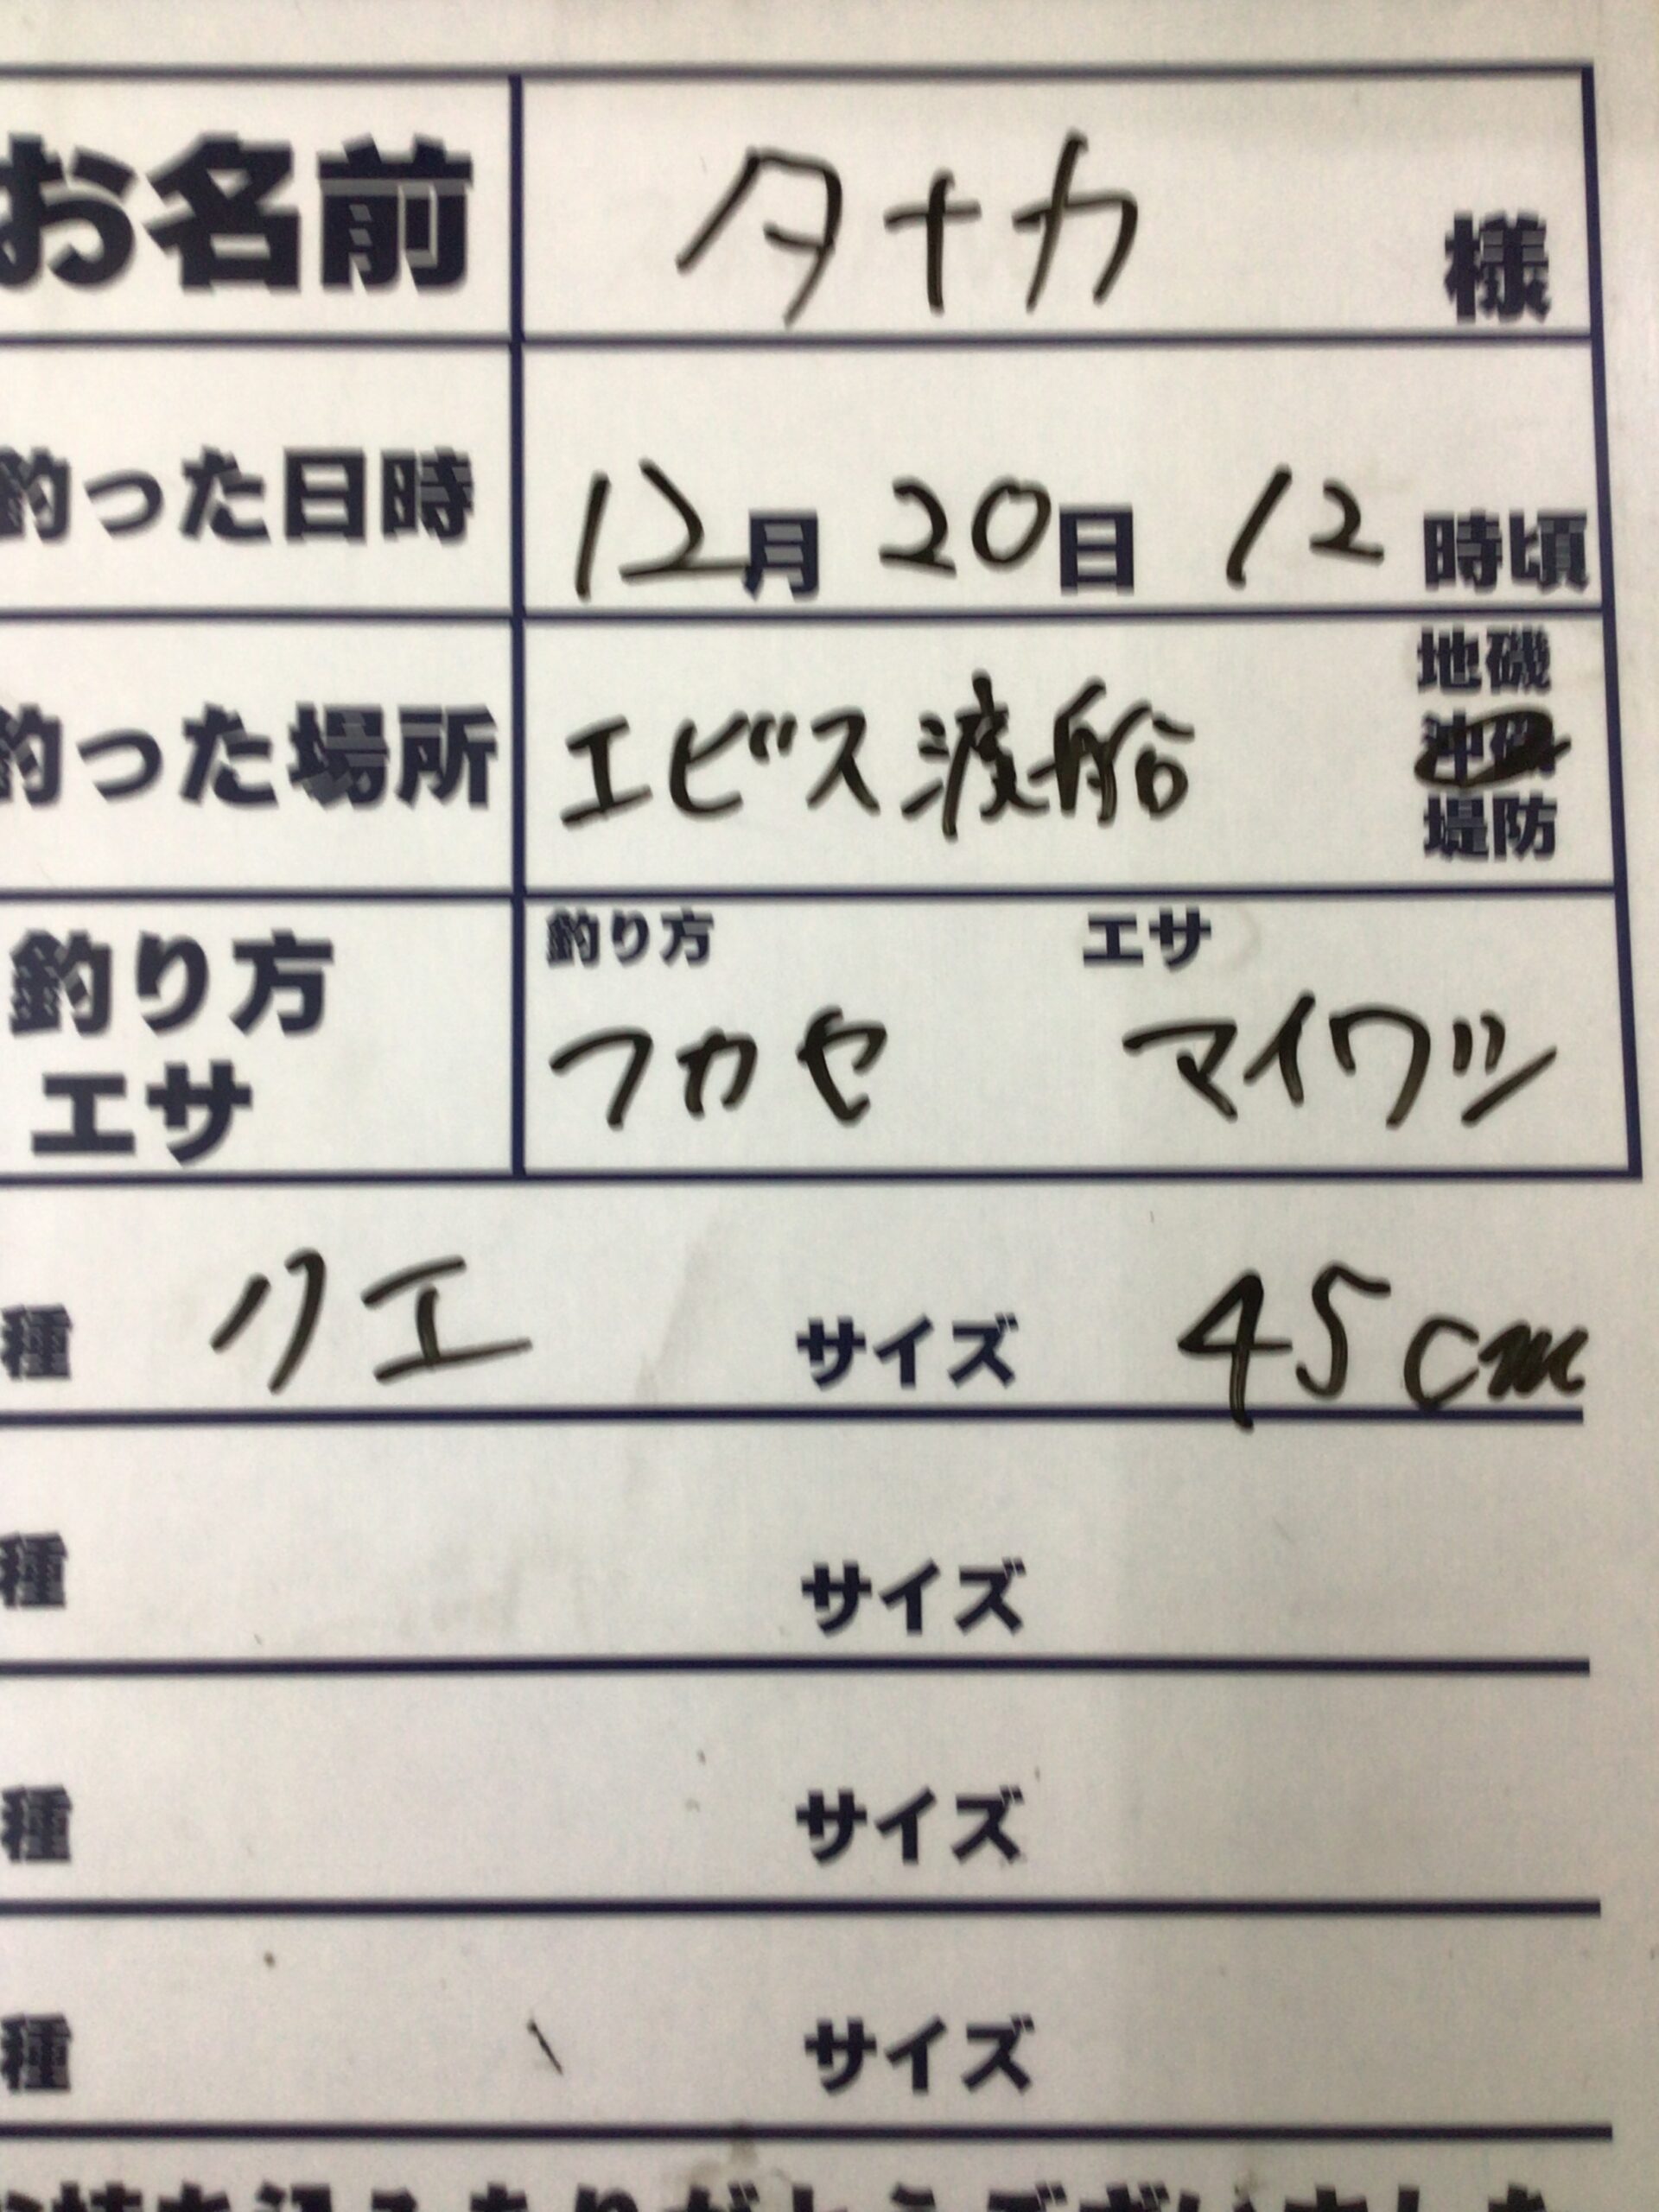 お名前 タナカ 様
釣った日時 12月 20日 12 時頃
地磯
釣った場所 エビス渡船 沖磯
堤防
釣り方 釣り方 エサ
エサ フカセ マイワシ
種 クエ サイズ 45cm
種 サイズ
種 サイズ
種 サイズ
お持ち込みありがとうございました